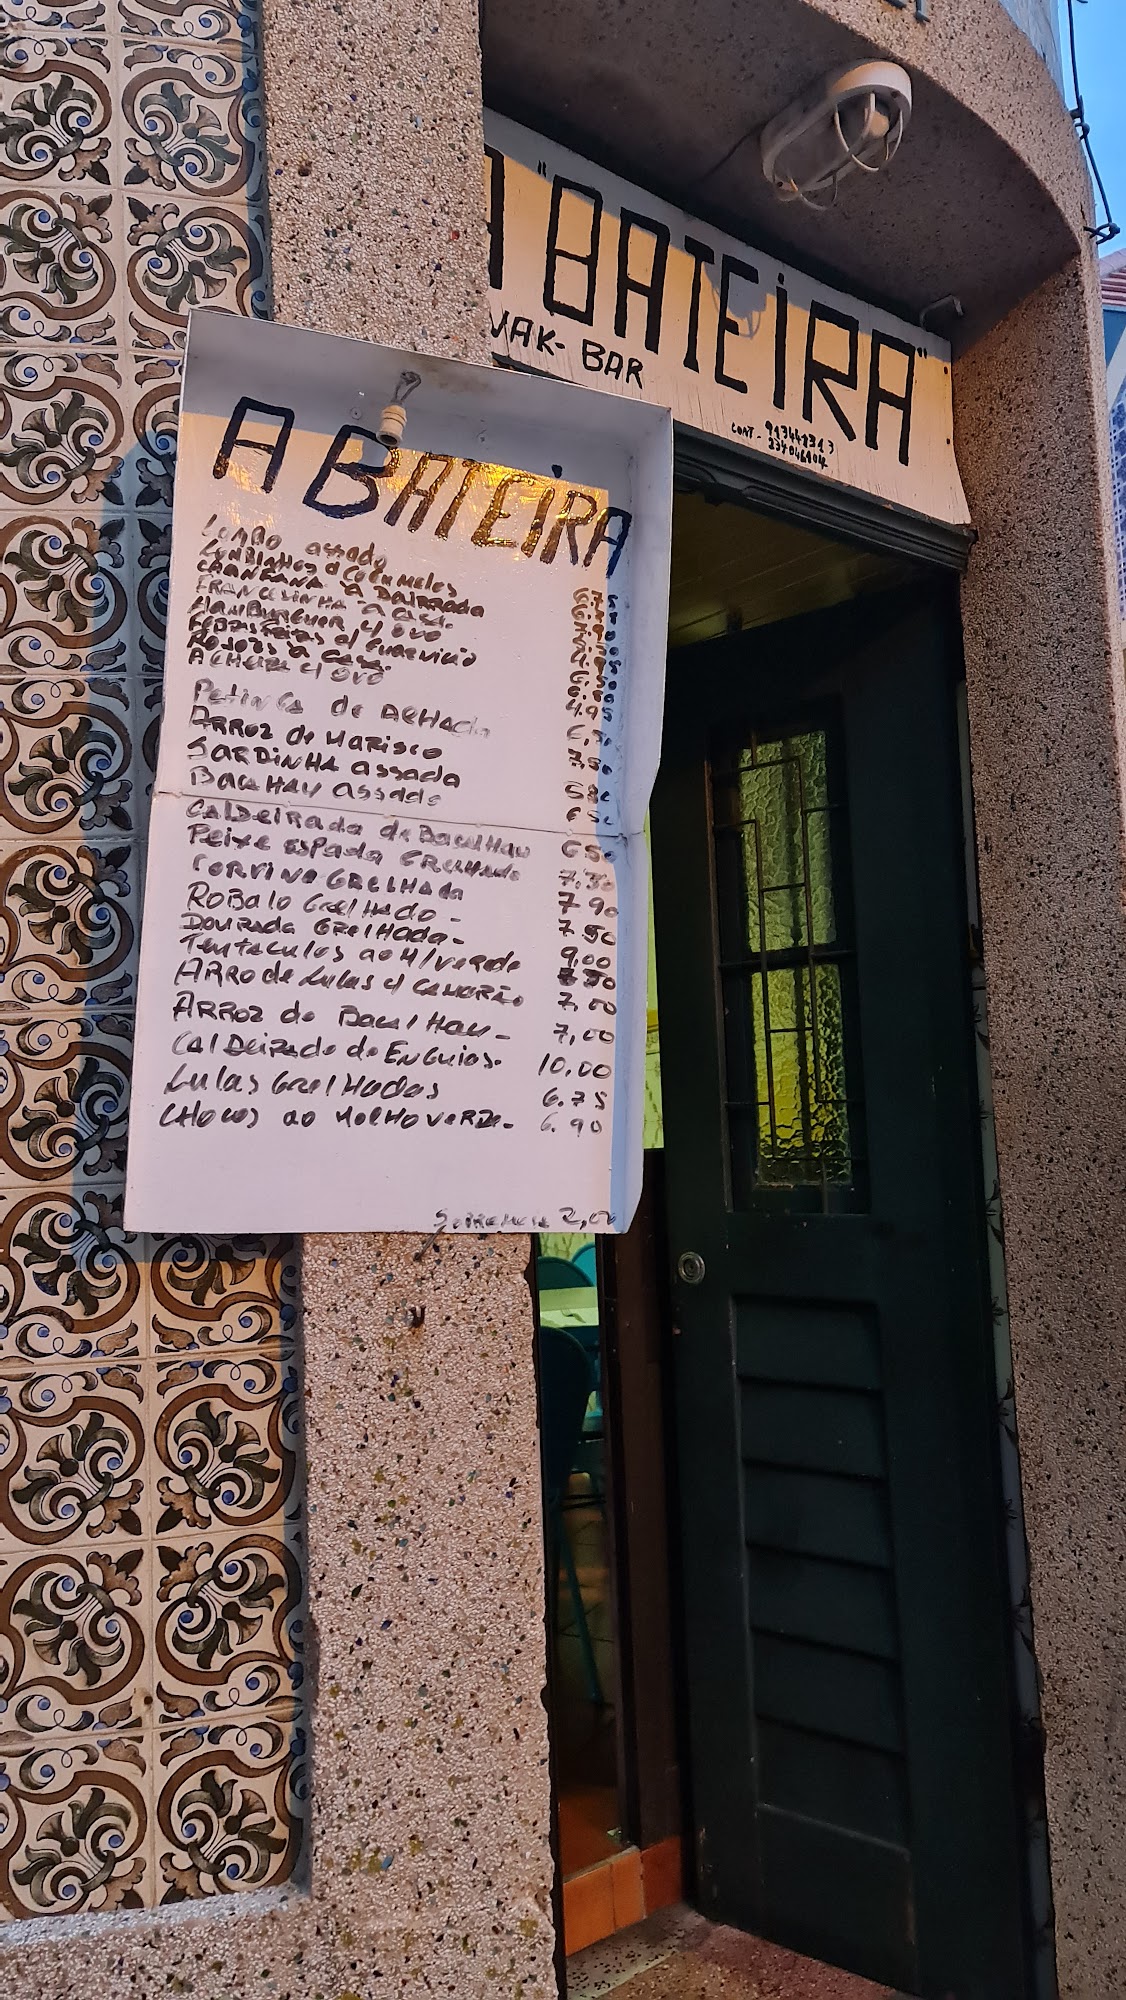 A "BATEIRA"
VAK-BAR
CONT- 913442313
234046404
A BATEIRA
LOMBO assado 6.75
LOMBINHOS d COGUMELOS
CHANFANA à BAIRRADA 7.90
FRANCESINHA à CASA.
HAMBURGUER c/ OVO 4.95
ROJOES à CASA 6.80
ALHEIRA c/ OVO 4.95
Petinga de ALHADA
ARROZ de MARISCO 7,50
SARDINHA assada
BACALHAU assado
CALDEIRADA de BACALHAU 6 50
PEIXE ESPADA GRELHADO 7.30
CORVINA GRELHADA 7 90
ROBALO GRELHADO - 7 50
DOURADA GRELHADA - 9,00
TENTACULOS ao M/ verde 7 50
ARRO de LULAS c/ CAMARÃO 7,00
ARROZ de BACALHAU - 7,00
CALDEIRADA de ENGUIAS. 10,00
LULAS GRELHADAS 6.75
CHOCOS ao MOLHO VERDE - 6.90
SOBREMESA 2,00